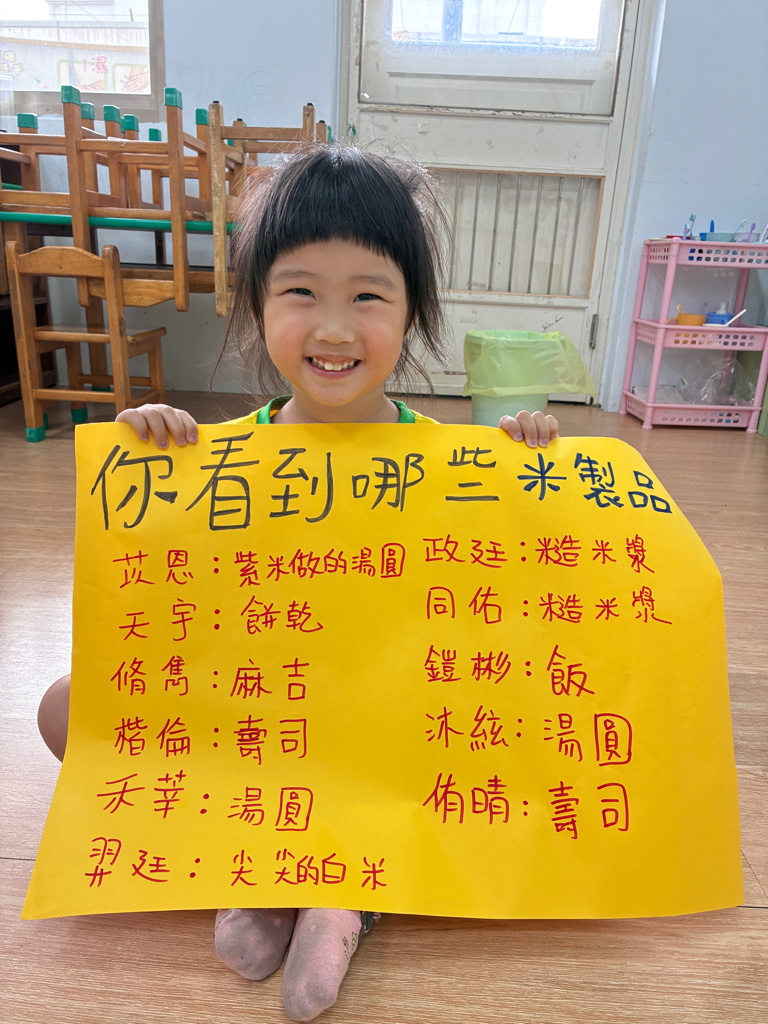 你看到哪些米製品
苡恩：紫米做的湯圓
天宇：餅乾
脩雋：麻吉
楷倫：壽司
禾莘：湯圓
羿廷：尖尖的白米
政廷：糙米漿
同佑：糙米漿
鎧彬：飯
沐絃：湯圓
侑晴：壽司